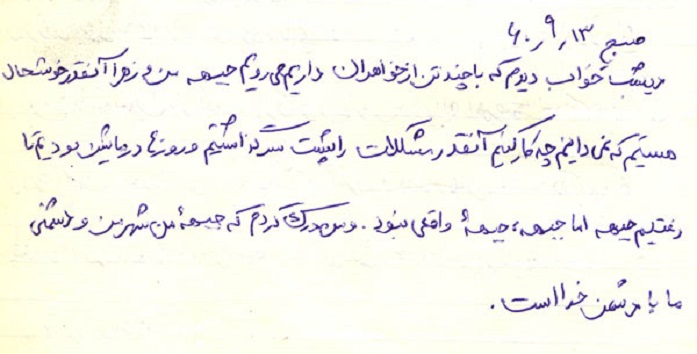 صبح ۶۰٫۹٫۱۳
دیشب خواب دیدم که با چند تن از خواهران داریم می رویم جبهه من و زهرا آنقدر خوشحال
هستیم که نمی دانیم چه کار کنیم آنقدر مشکلات را پشت سر گذاشتیم و روزها در ماشین بودیم تا
رفتیم جبهه اما جبهه، جبههٔ واقعی نبود. و من درک کردم که جبههٔ من شهر من و دشمنی
ما با دشمن خدا است.